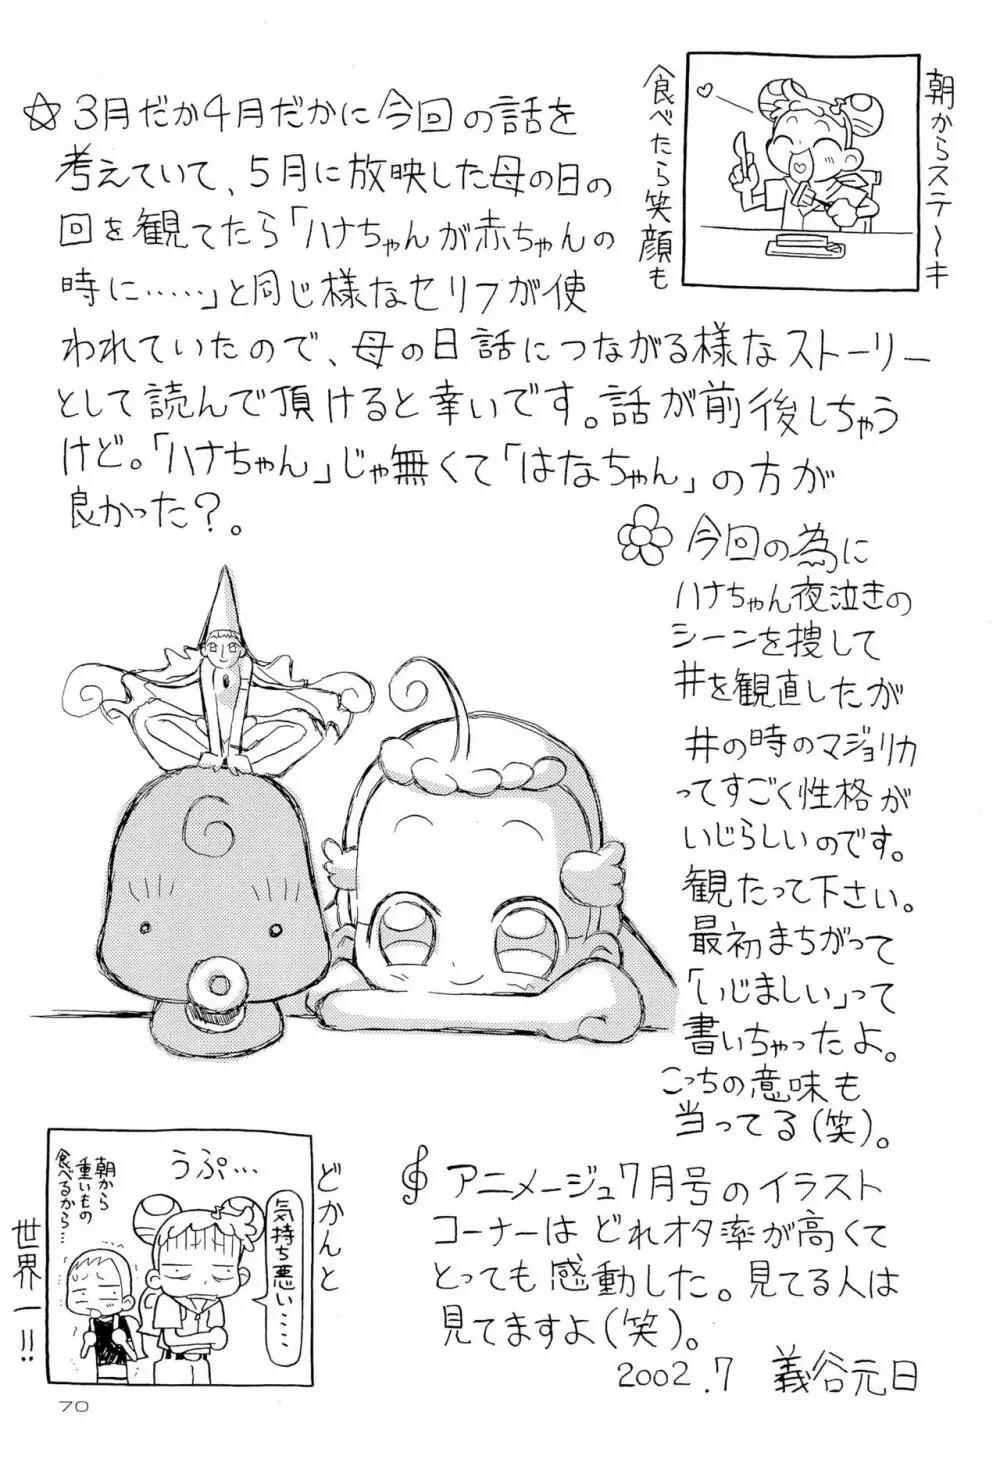 朝からステ〜キ
食べたら笑顔も
☆3月だか4月だかに今回の話を
考えていて、5月に放映した母の日の
回を観てたら「ハナちゃんが赤ちゃんの
時に……」と同じ様なセリフが使
われていたので、母の日話につながる様なストーリー
として読んで頂けると幸いです。話が前後しちゃう
けど。「ハナちゃん」じゃ無くて「はなちゃん」の方が
良かった?。
今回の為に
ハナちゃん夜泣きの
シーンを捜して
#を観直したが
#の時のマジョリカ
ってすごく性格が
いじらしいのです。
観たって下さい。
最初まちがって
「いじましい」って
書いちゃったよ。
こっちの意味も
当ってる(笑)。
アニメージュ7月号のイラスト
コーナーはどれオタ率が高くて
とっても感動した。見てる人は
見てますよ(笑)。
2002.7 義谷元日
どかんと
世界一!!
うぷ…
気持ち悪い....
朝から
重いもの
食べるから…
70